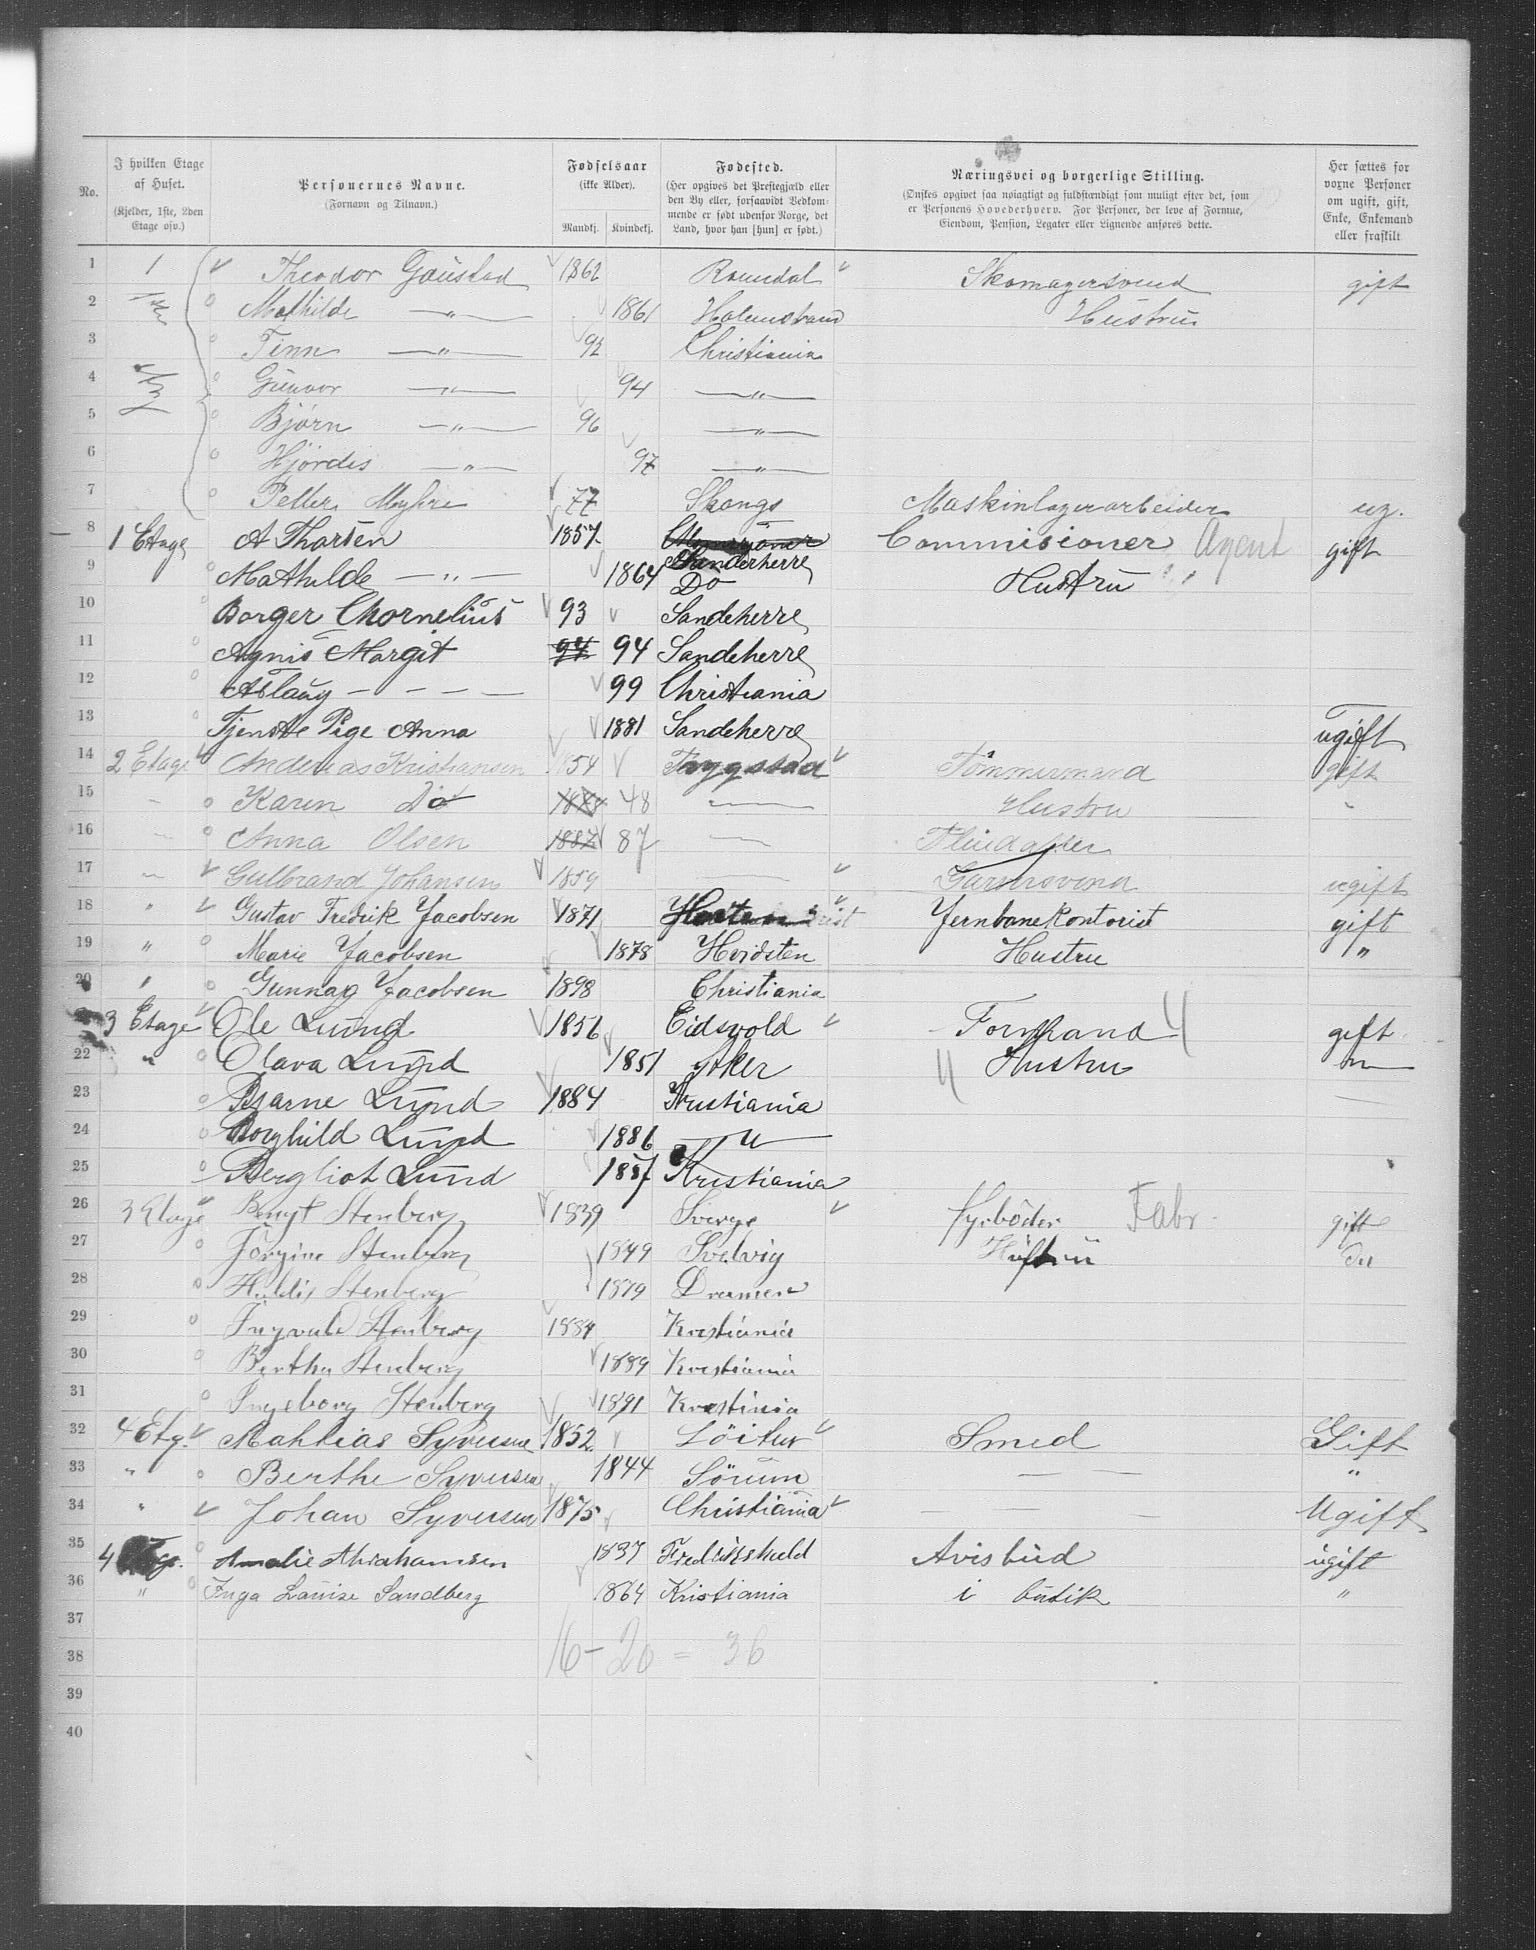 No.
I hvilken Etage af Huset. (Kjelder, 1ste, 2den Etage osv.)
Personernes Navne. (Fornavn og Tilnavn.)
Fødselsaar (ikke Alder). Mandkj. Kvindekj.
Fødested. (Her opgives det Prestegjæld eller den By eller, forsaavidt Vedkommende er født udenfor Norge, det Land, hvor han [hun] er født.)
Næringsvei og borgerlige Stilling. (Ønskes opgivet saa nøiagtigt og fuldstændigt som muligt efter det, som er Personens Hovederhverv. For Personer, der leve af Formue, Eiendom, Pension, Legater eller Lignende anføres dette.
Her sættes for voxne Personer om ugift, gift, Enke, Enkemand eller fraskilt
1 1 Theodor Gaustad 1862 Romedal Skomagersvend gift
2 Mathilde —"— 1861 Holmestrand Hustru
3 Finn —"— 92 Christiania
4 Gunvor —"— 94 —"—
5 Bjørn —"— 96 —"—
6 Hjørdis —"— 97 —"—
7 Petter Myhre 77 Skongs Maskinlagerarbeider ug.
8 1 Etage A Thorsen 1857 Sanderherre Commisioner Agent gift
9 Mathilde —"— 1864 Do Hustru
10 Borger Chornelius 93 Sandeherre
11 Agnis Margit 94 94 Sandeherre
12 Aslaug - - - - 99 Christiania
13 Tjenste Pige Anna 1881 Sandeherre ugift
14 2 Etage Andreas Kristiansen 1854 Trygstad Tømmermand gift
15 - Karen Do 48 — Hustru "
16 - Anna Olsen 1887 87 — Pleiedatter
17 - Gulbrand Johansen 1859 — Garversvend ugift
18 " Gustav Fredrik Jacobsen 1871 Jernbanekontorist gift
19 " Marie Jacobsen 1878 Hvidsten Hustru "
20 " Gunnar Jacobsen 1898 Christiania
3 Etage Ole Lund 1856 Eidsvold Formand 4 gift
22 " Olava Lund 1851 Aker Hustru "
23 Bjarne Lund 1884 Kristiania —
24 Borghild Lund 1886 —"—
25 Bergliot Lund 1887 Kristiania
26 3 Etage Bengt Stenberg 1839 Sverge Fyrbøder Fabr. gift
27 Jørgine Stenberg 1849 Svelvig Hustru Do
28 Huldis Stenberg 1879 Dramen
29 Ingvald Stenberg 1884 Kristiania
30 Bertha Stenberg 1889 Kristiania
31 Ingeborg Stenberg 1891 Kristinia
32 4 Etg. Mahtias Syversen 1852 Löiten Smed Gift
33 " Berthe Syversen 1844 Sörum — — "
34 " Johan Syversen 1875 Christiania — — Ugift
35 4 Etge. Amalie Abrahamsen 1837 Fredrikshald Avisbud ugift
36 " Inga Louise Sandberg 1864 Kristiania i butik "
37
38 16 - 20 = 36
39
40